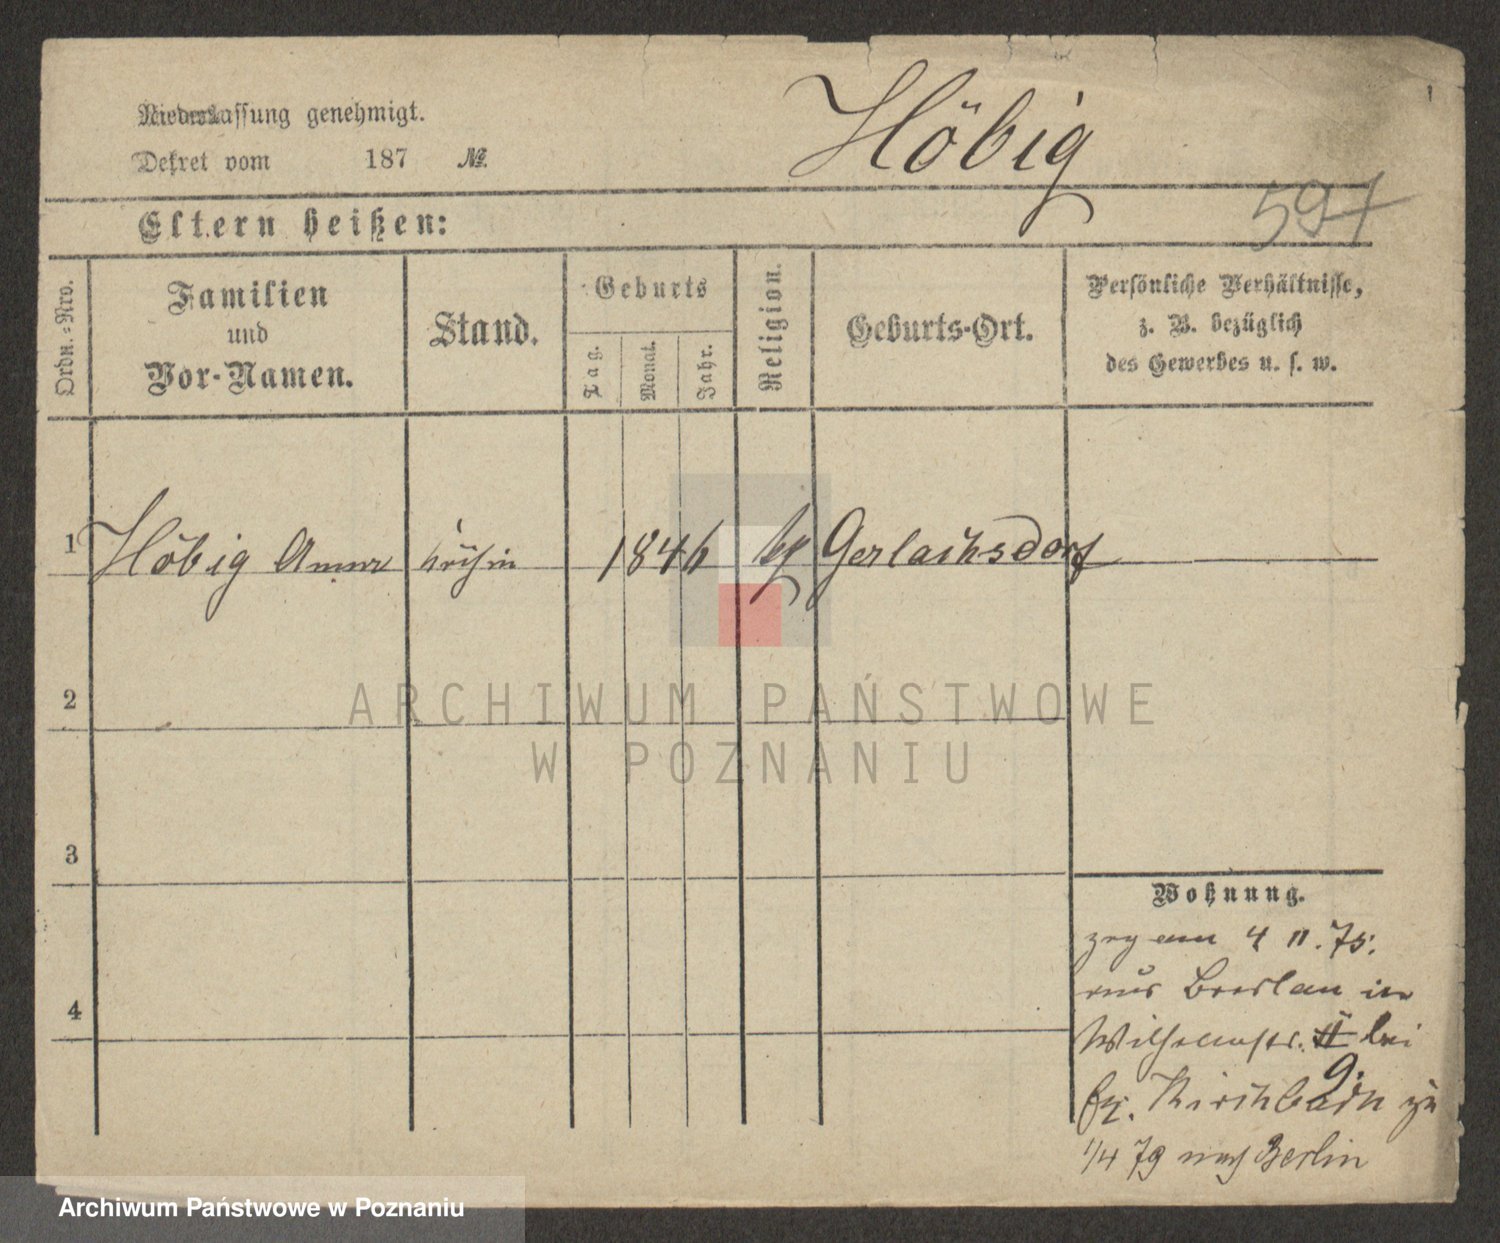 Niederlassung genehmigt.
Dekret vom 187 №
Höbig
597
Eltern heißen:
Ordn.-Nro.
Familien
und
Vor-Namen.
Stand.
Geburts
Tag.
Monat.
Jahr.
Religion.
Geburts-Ort.
Persönliche Verhältnisse,
z. B. bezüglich
des Gewerbes u. s. w.
1 Höbig Anna Köchin 1846 Gerlachsdorf
2
3
4
Wohnung.
zog am 4 11. 75.
aus Breslau in
Wilhelmstr. 11 bei
9.
Kirchbach zu
1/4 79 nach Berlin
ARCHIWUM PAŃSTWOWE
W POZNANIU
Archiwum Państwowe w Poznaniu